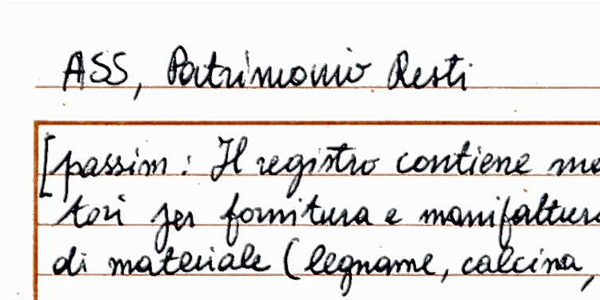 ASS, Patrimonio Resti
[passim: Il registro contiene
tori per fornitura e manifattura
di materiale (legname, calcina,